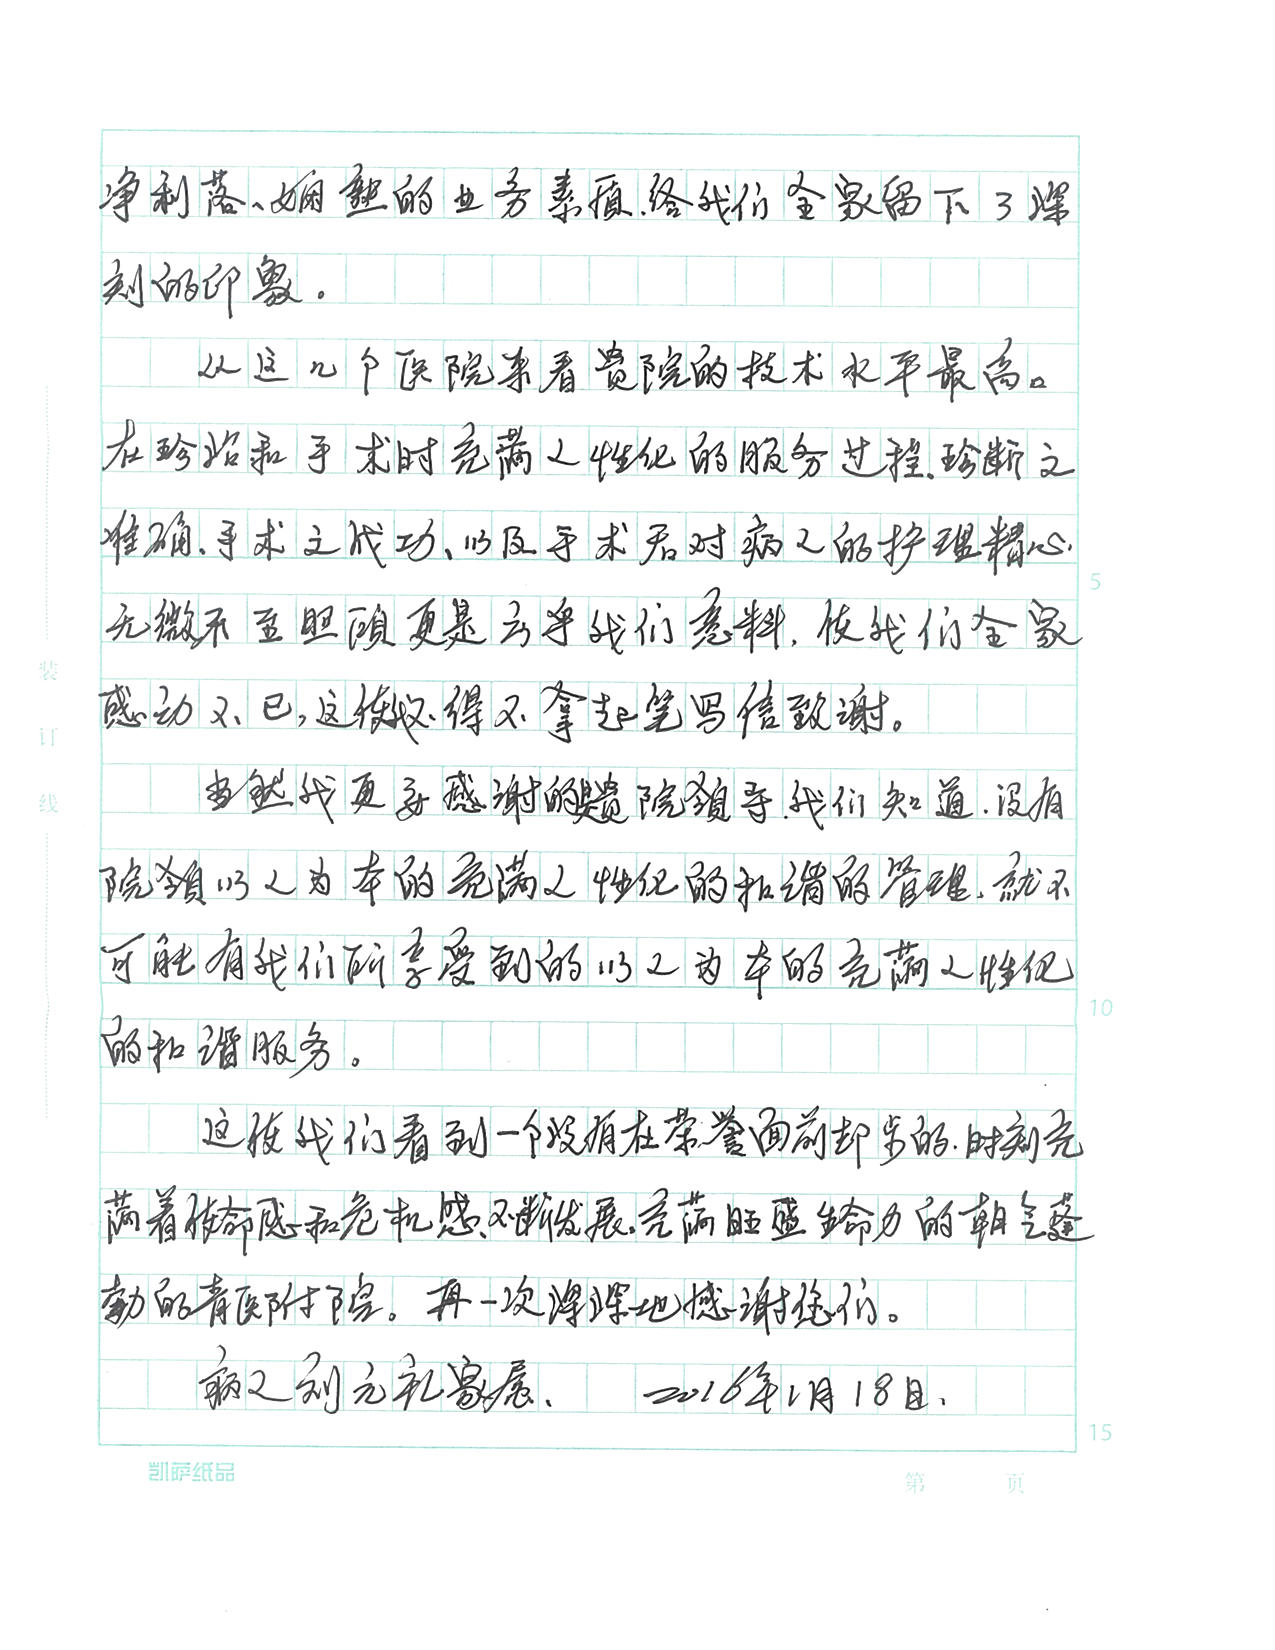 净利落、娴熟的业务素质.给我们全家留下了深
刻的印象。
从这几个医院来看贵院的技术水平最高。
在诊治和手术时充满人性化的服务过程.诊断之
准确、手术之成功、以及手术后对病人的护理精心.
无微不至照顾更是出乎我们意料.使我们全家
感动不已,这使我不得不拿起笔写信致谢。
当然我更要感谢的是贵院领导.我们知道.没有
院领以人为本的充满人性化的和谐的管理.就不
可能有我们所享受到的以人为本的充满人性化
的和谐服务。
这使我们看到一个没有在荣誉面前却步的.时刻充
满着使命感和危机感、不断发展.充满旺盛生命力的朝气蓬
勃的青医附院。再一次深深地感谢您们。
病人刘元礼家属、 2016年1月18日.
装订线
5
10
15
凯萨纸品
第 页